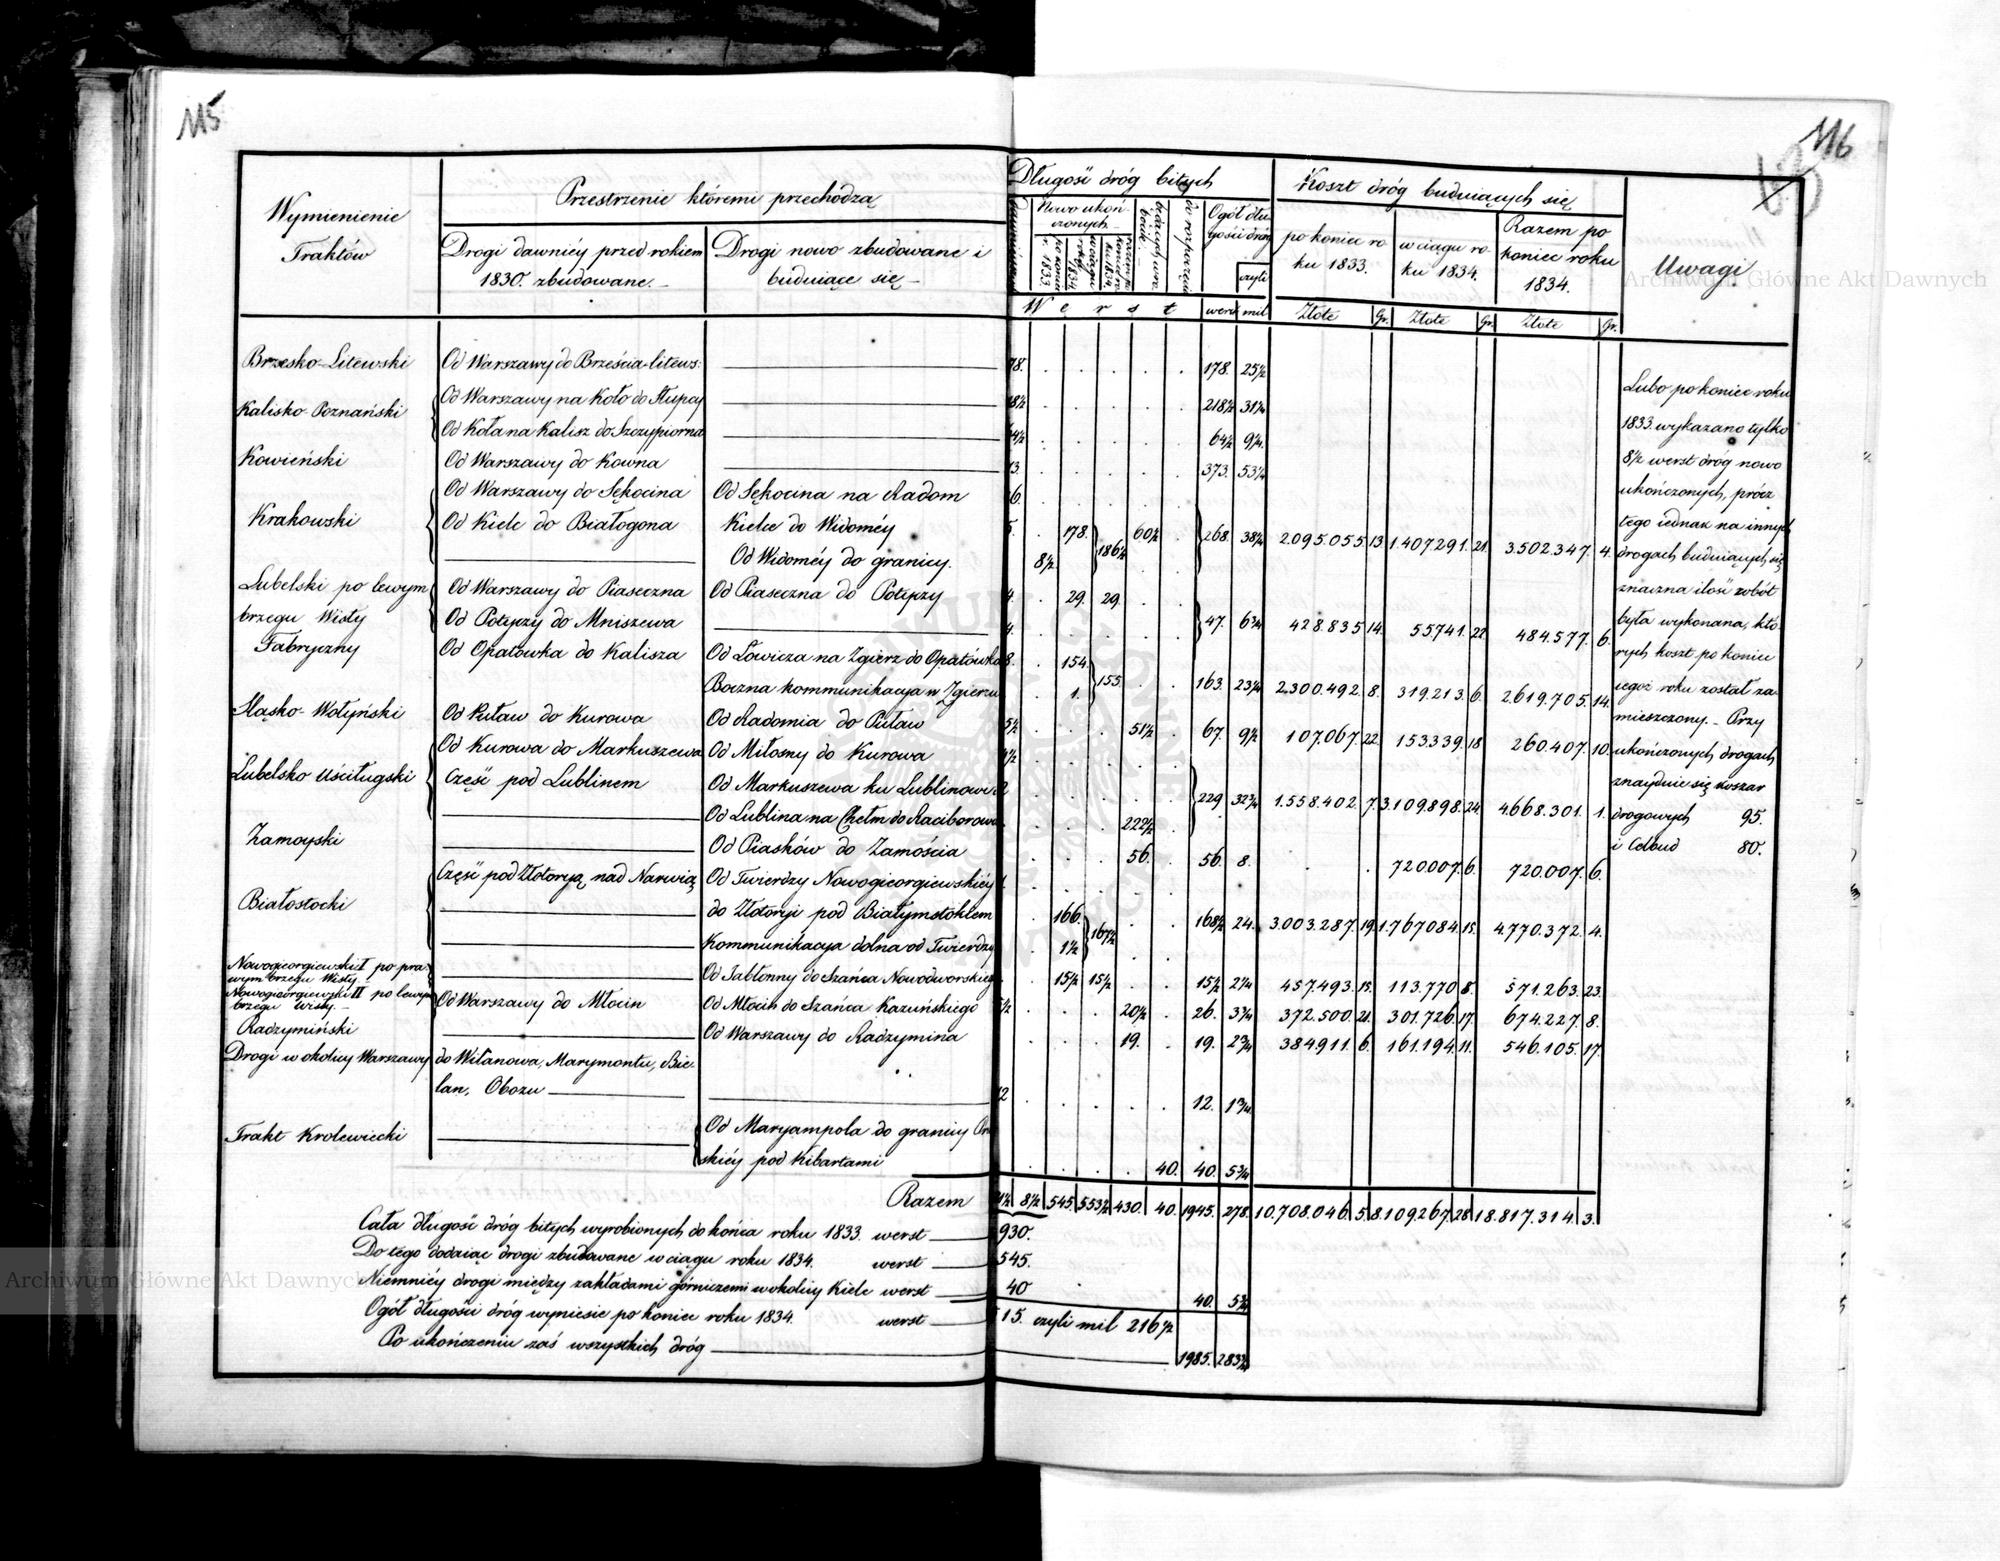 115
116
Wymienienie Traktów
Przestrzenie któremi przechodzą
Drogi dawniéy przed rokiem 1830. zbudowane.
Drogi nowo zbudowane i budujące się
Długość dróg bitych
Nowo ukończonych
Ogół długości dróg
czyli
Werst
werst mil
Koszt dróg budujących się
po koniec roku 1833.
w ciągu roku 1834.
Razem po koniec roku 1834.
Złote Gr. Złote Gr. Złote Gr.
Uwagi
Brzesko-Litewski Od Warszawy do Brześcia-litews: 78. 178. 25½
Kalisko Poznański Od Warszawy na Koło do Słupcy 18½ 218½ 31¼
Od Koła na Kalisz do Szczypiorna 4½ 64½ 9¼
Kowieński Od Warszawy do Kowna 3. 373. 53¼
Od Warszawy do Sękocina Od Sękocina na Radom 6.
Krakowski Od Kielc do Białogona Kielce do Widoméy 5. 178. 60½ 268. 38¼ 2.095.055. 13 1.407.291. 21. 3.502.347. 4.
Od Widoméy do granicy. 8½ 186½
Lubelski po lewym Od Warszawy do Piaseczna Od Piaseczna do Potyczy 4. 29. 29.
brzegu Wisły Od Potyczy do Mniszewa 4. 47. 6¾ 428.835 14. 55.741. 22 484.577. 6.
Fabryczny Od Opatówka do Kalisza Od Łowicza na Zgierz do Opatówka 8. 154.
Boczna kommunikacya w Zgierzu 1. 155. 163. 23¼ 2.300.492. 8. 319.213. 6. 2.619.705. 14.
Sląsko-Wołyński Od Puław do Kurowa Od Radomia do Puław 5½ 51½ 67. 9½ 107.067. 22. 153.339. 18 260.407. 10.
Od Kurowa do Markuszewa Od Miłosny do Kurowa 4½
Lubelsko Uściługski Część pod Lublinem Od Markuszewa ku Lublinowi 2 229 32¾ 1.558.402. 7. 3.109.898. 24. 4.668.301. 1.
Od Lublina na Chełm do Raciborowa 222½
Zamoyski Od Piasków do Zamościa 56. 56. 8. 720.007. 6. 720.007. 6.
Część pod Złotoryą nad Narwią Od Twierdzy Nowogieorgiewskiéy
Białostocki do Złotoryi pod Białymstokiem 166. 168½ 24. 3.003.287. 19. 1.767.084. 15. 4.770.372. 4.
Kommunikacya dolna od Twierdzy 1½ 167½
Nowogieorgiewski I po prawym brzegu Wisły Od Jabłonny do Szańca Nowodworskiego 15½ 15½ 15½ 2¼ 457.493. 15. 113.770 8. 571.263. 23.
Nowogieorgiewski II po lewym brzegu Wisły Od Warszawy do Młocin Od Młocin do Szańca Kazuńskiego ½ 20½ 26. 3¾ 372.500. 21. 301.726. 17. 674.227. 8.
Radzymiński Od Warszawy do Radzymina 19. 19. 2¾ 384.911. 6. 161.194. 11. 546.105. 17.
Drogi w okolicy Warszawy do Wilanowa, Marymontu, Bielan, Obozu 12 12. 1¾
Trakt Krolewiecki Od Maryampola do granicy Pruskiéy pod Kibartami 40. 40. 5¾
Razem 8½ 545. 553½ 430. 40. 1945. 278. 10.708.046. 5 8.109.267. 28 18.817.314. 3.
Cała długość dróg bitych wyrobionych do końca roku 1833. werst 930.
Do tego dodaiąc drogi zbudowane w ciągu roku 1834. werst 545.
Niemniéy drogi między zakładami górniczemi w okolicy Kielc werst 40 40. 5¾
Ogół długości dróg wyniesie po koniec roku 1834. werst 15. czyli mil 216½
Po ukończeniu zaś wszystkich dróg 1985. 283¾
Lubo po koniec roku
1833. wykazano tylko
8½ werst dróg nowo
ukończonych, prócz
tego iednak na innych
drogach buduiących się
znaczna ilość robót
była wykonana, któ-
rych koszt po koniec
tegoż roku został za
mieszczony. - Przy
ukończonych drogach
znayduie się koszar
drogowych 95.
i Celbud 80.
Archiwum Główne Akt Dawnych
Archiwum Główne Akt Dawnych